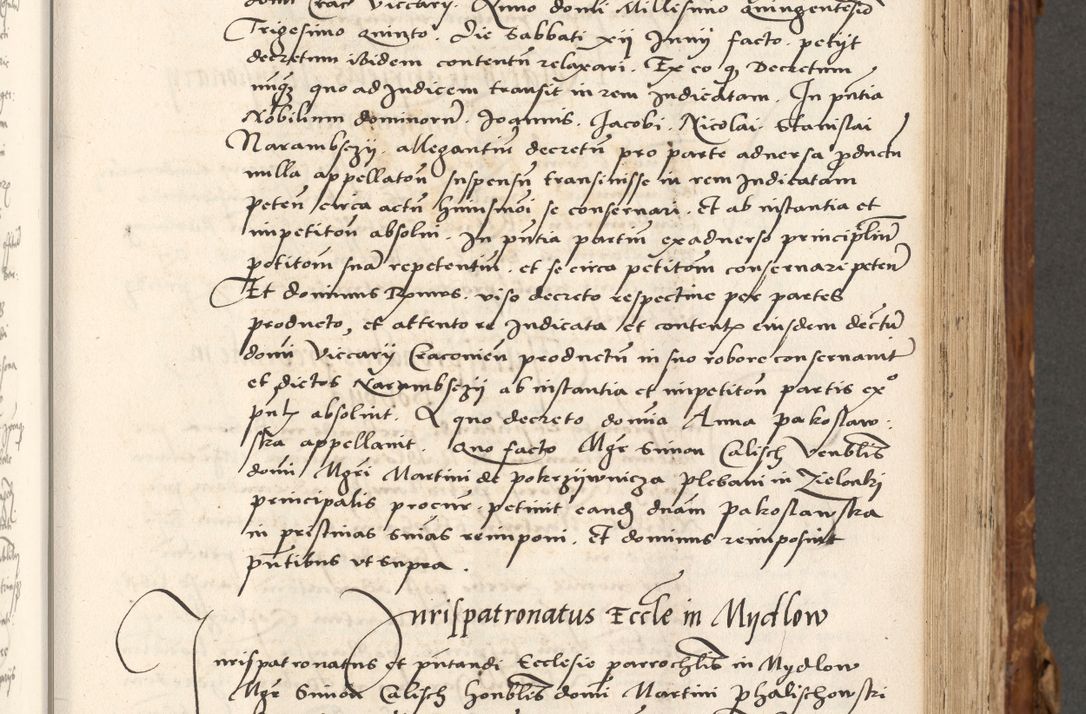 domi Crac Viccarij. Anno domi Millesimo quingentesio
Trigesimo quinto. Die Sabbati xij Junij facto. petijt
decretum ibidem contentum relaxari. Ex eo q Decretum
nunqz quo ad Judicem transit in rem Judicatam. In pntia
Nobilium dominorum. Joannis. Jacobi. Nicolai. Stanislai
Narambszij. allegantiu decretu pro parte aduersa productu
nulla appellaton suspensu transiuisse in rem Judicatam
peten circa actu huiusmoi se conseruari. Et ab instantia et
impetiton absolui. In pntia partiu ex aduerso principaliu
petitom sua repetentiu. et se circa petitom conseruari peten
Et dominus Romus. viso decreto respectiue per partes
producto, et attento re Judicata et contentx eiusdem dectu
domi Viccarij Cracouien productu in suo robore conseruauit
et dictos Narambszij ab instantia et impetiton partis exo
pntz absoluit. A quo decreto domia Anna Pakoslaw.
ska appellauit Quo facto Mgr Simon Calisch Venblis
domi Mgri Martini de Pokrzijwnicza plebani in Zielonki
principalis procur. petiuit eandz dnam Pakoslawska
in pristinas snias reimponi. Et dominus reimposuit
pntibus vt supra.
Jurispatronatus Eccle in Mydlow
Jurispatronatus et pntandi Ecclesie parrochlis in Mydlow
Mgr Simon Calisch honblis domi Martini Phalischowski